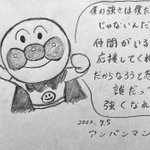 僕の強さは僕だ
じゃないんだ
仲間がいる
応援してくれ
だからなろうと
誰だっ
強くなれ
アンパンマン